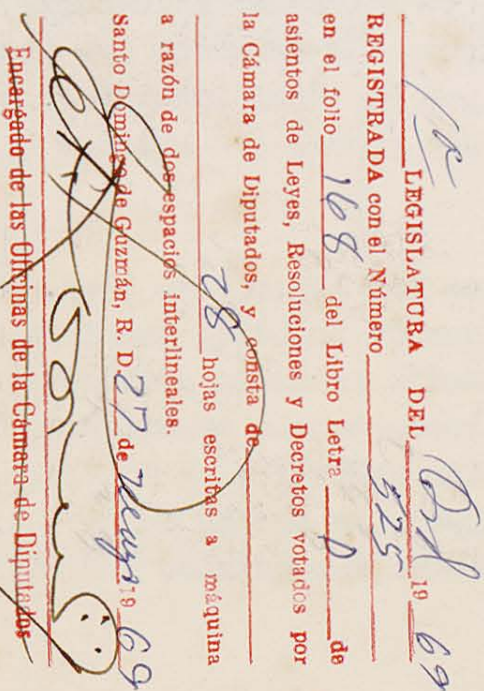 1a LEGISLATURA DEL Ord 1969
REGISTRADA con el Número 525
en el folio 168 del Libro Letra D de
asientos de Leyes, Resoluciones y Decretos votados por
la Cámara de Diputados, y consta de
28 hojas escritas a máquina
a razón de dos espacios interlineales.
Santo Domingo de Guzmán, R. D. 27 de 1969
Encargado de las Oficinas de la Cámara de Diputados